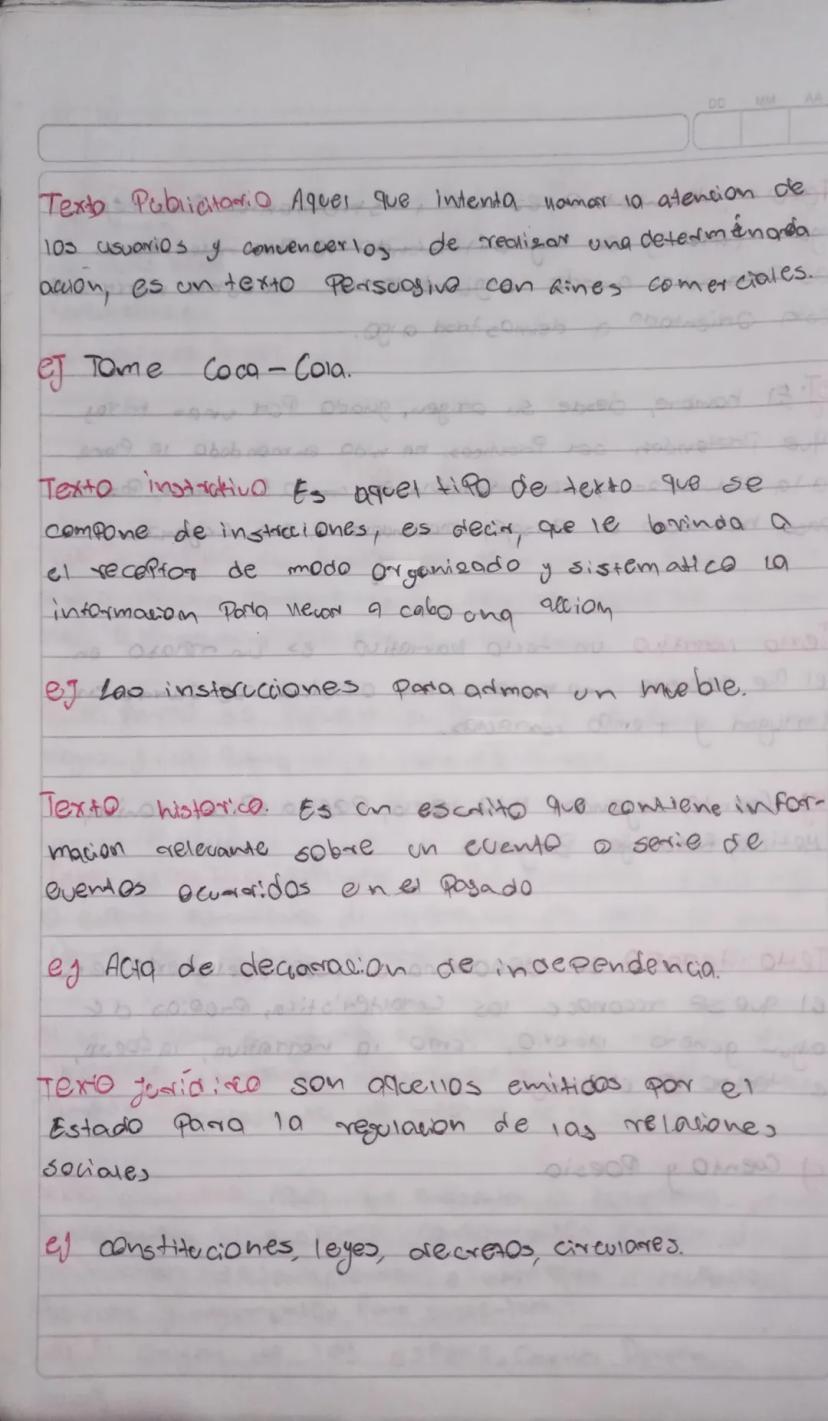 DD MM AA
Texto Publicitario Aquel que intenta llamar la atencion de
los usuarios y convencerlos de realizar una determinada
acción, es un texto Persuasivo con fines comerciales.
ej Tome Coca-Cola.
Texto instructivo Es aquel tipo de texto que se
compone de instrucciones, es decir, que le brinda a
el receptor de modo organizado y sistematico la
informacion para llevar a cabo una accion
ej Las instrucciones para armar un mueble.
Texto historico. Es un escrito que contiene infor-
macion relevante sobre un evento o serie de
eventos ocurridos en el Pasado
ej Acta de declaracion de independencia.
Texto jurídico son aquellos emitidos por el
Estado Para la regulacion de las relaciones
sociales
ej constituciones, leyes, decretos, circulares.